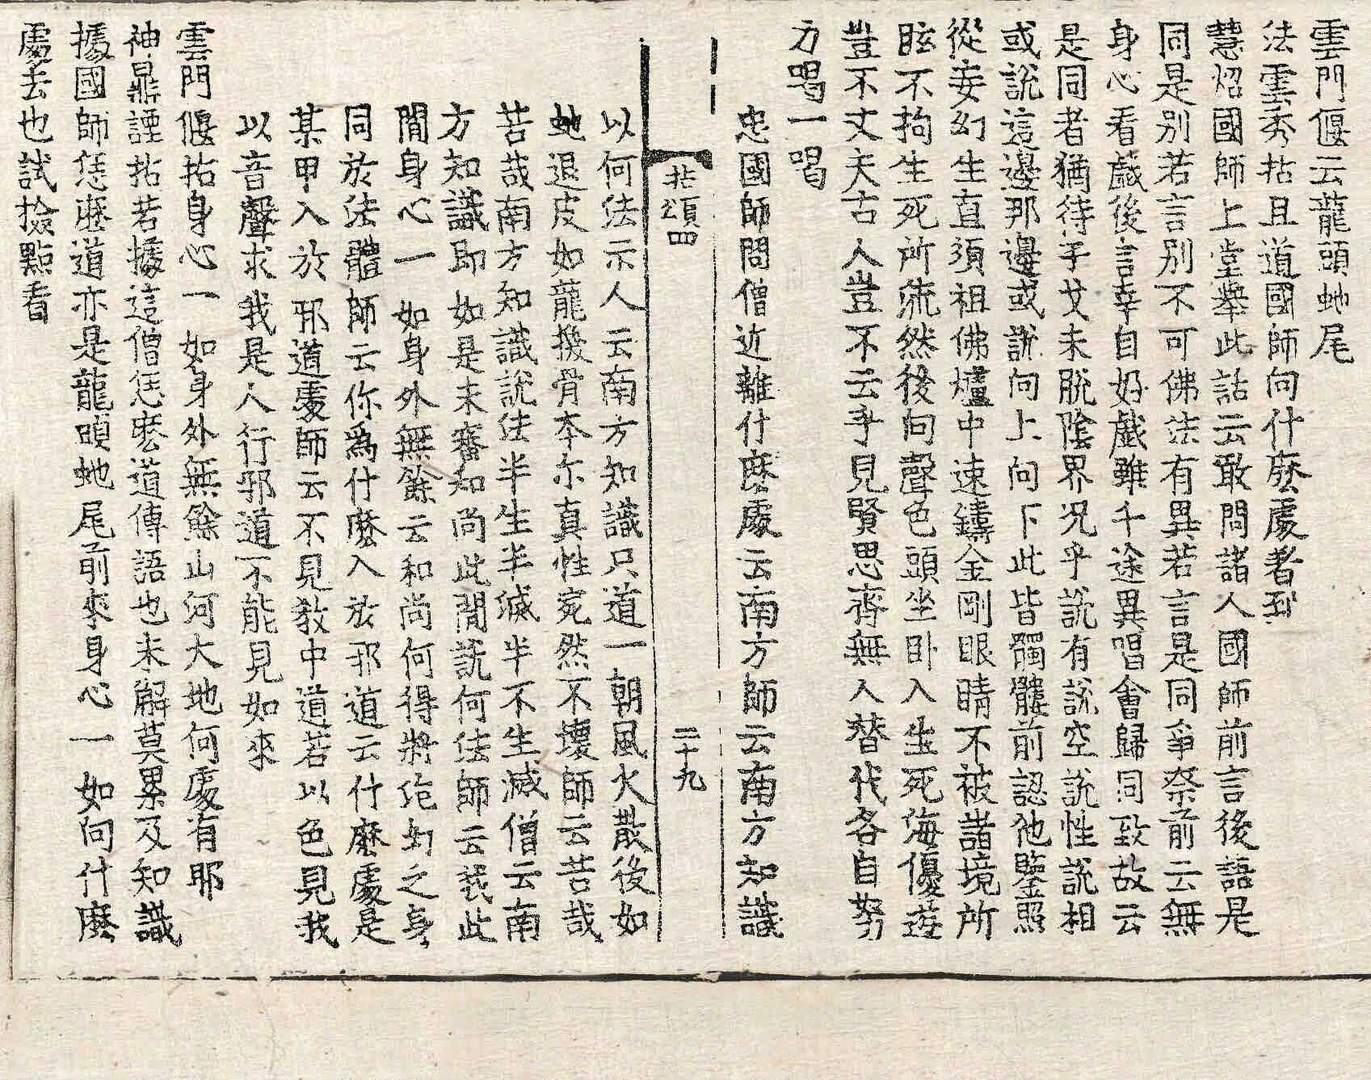 雲門偃云龍頭虵尾
法雲秀拈且道國師向什麽處著到
慧炤國師上堂舉此話云敢問諸人國師前言後語是
同是別若言別不可佛法有異若言是同爭柰前云無
身心看戱後言幸自好戱雖千途異唱會歸同致故云
是同者猶待手文未脫陰界况乎說有說空說性說相
或說這邊那邊或說向上向下此皆髑髏前認他鑒照
從妄幻生直須祖佛爐中速鑄金剛眼睛不被諸境所
眩不拘生死所流然後向聲色頭坐卧入生死海優遊
豈不丈夫古人豈不云乎見賢思齊無人替代各自努
力喝一喝
忠國師問僧近離什麽處云南方師云南方知識
拈頌四
二十九
以何法示人云南方知識只道一朝風火散後如
虵退皮如龍換骨本尒真性宛然不壞師云苦哉
苦哉南方知識說法半生半滅半不生滅僧云南
方知識即如是未審和尚此閒說何法師云我此
閒身心一如身外無餘云和尚何得將泡幻之身
同於法體師云你爲什麽入於邪道云什麽處是
某甲入於邪道處師云不見敎中道若以色見我
以音聲求我是人行邪道不能見如來
雲門偃拈身心一如身外無餘山河大地何處有耶
神鼎諲拈若據這僧恁麽道傳語也未解莫累及知識
據國師恁麽道亦是龍頭虵尾前來身心一如向什麽
處去也試撿點看